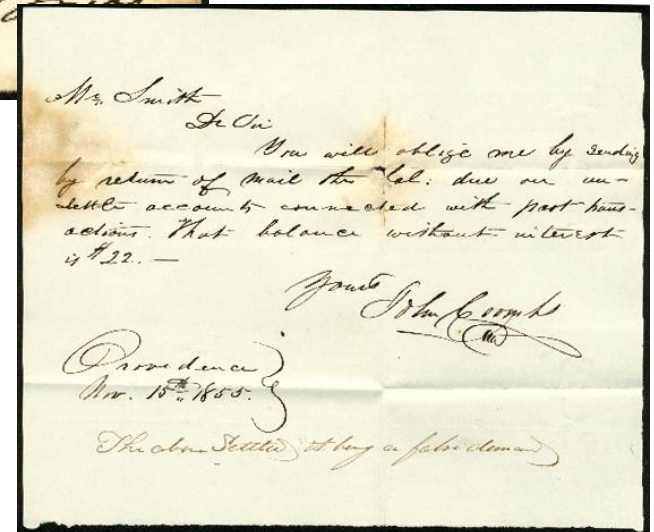 Mr. Smith
Dr Sir
You will oblige me by sending
by return of mail the bal: due on un-
settle accounts connected with past trans-
actions. That balance without interest
is $22. —
Yours
John Coombs
Providence
Nov. 15th, 1855.
The above Settled it being a false demand